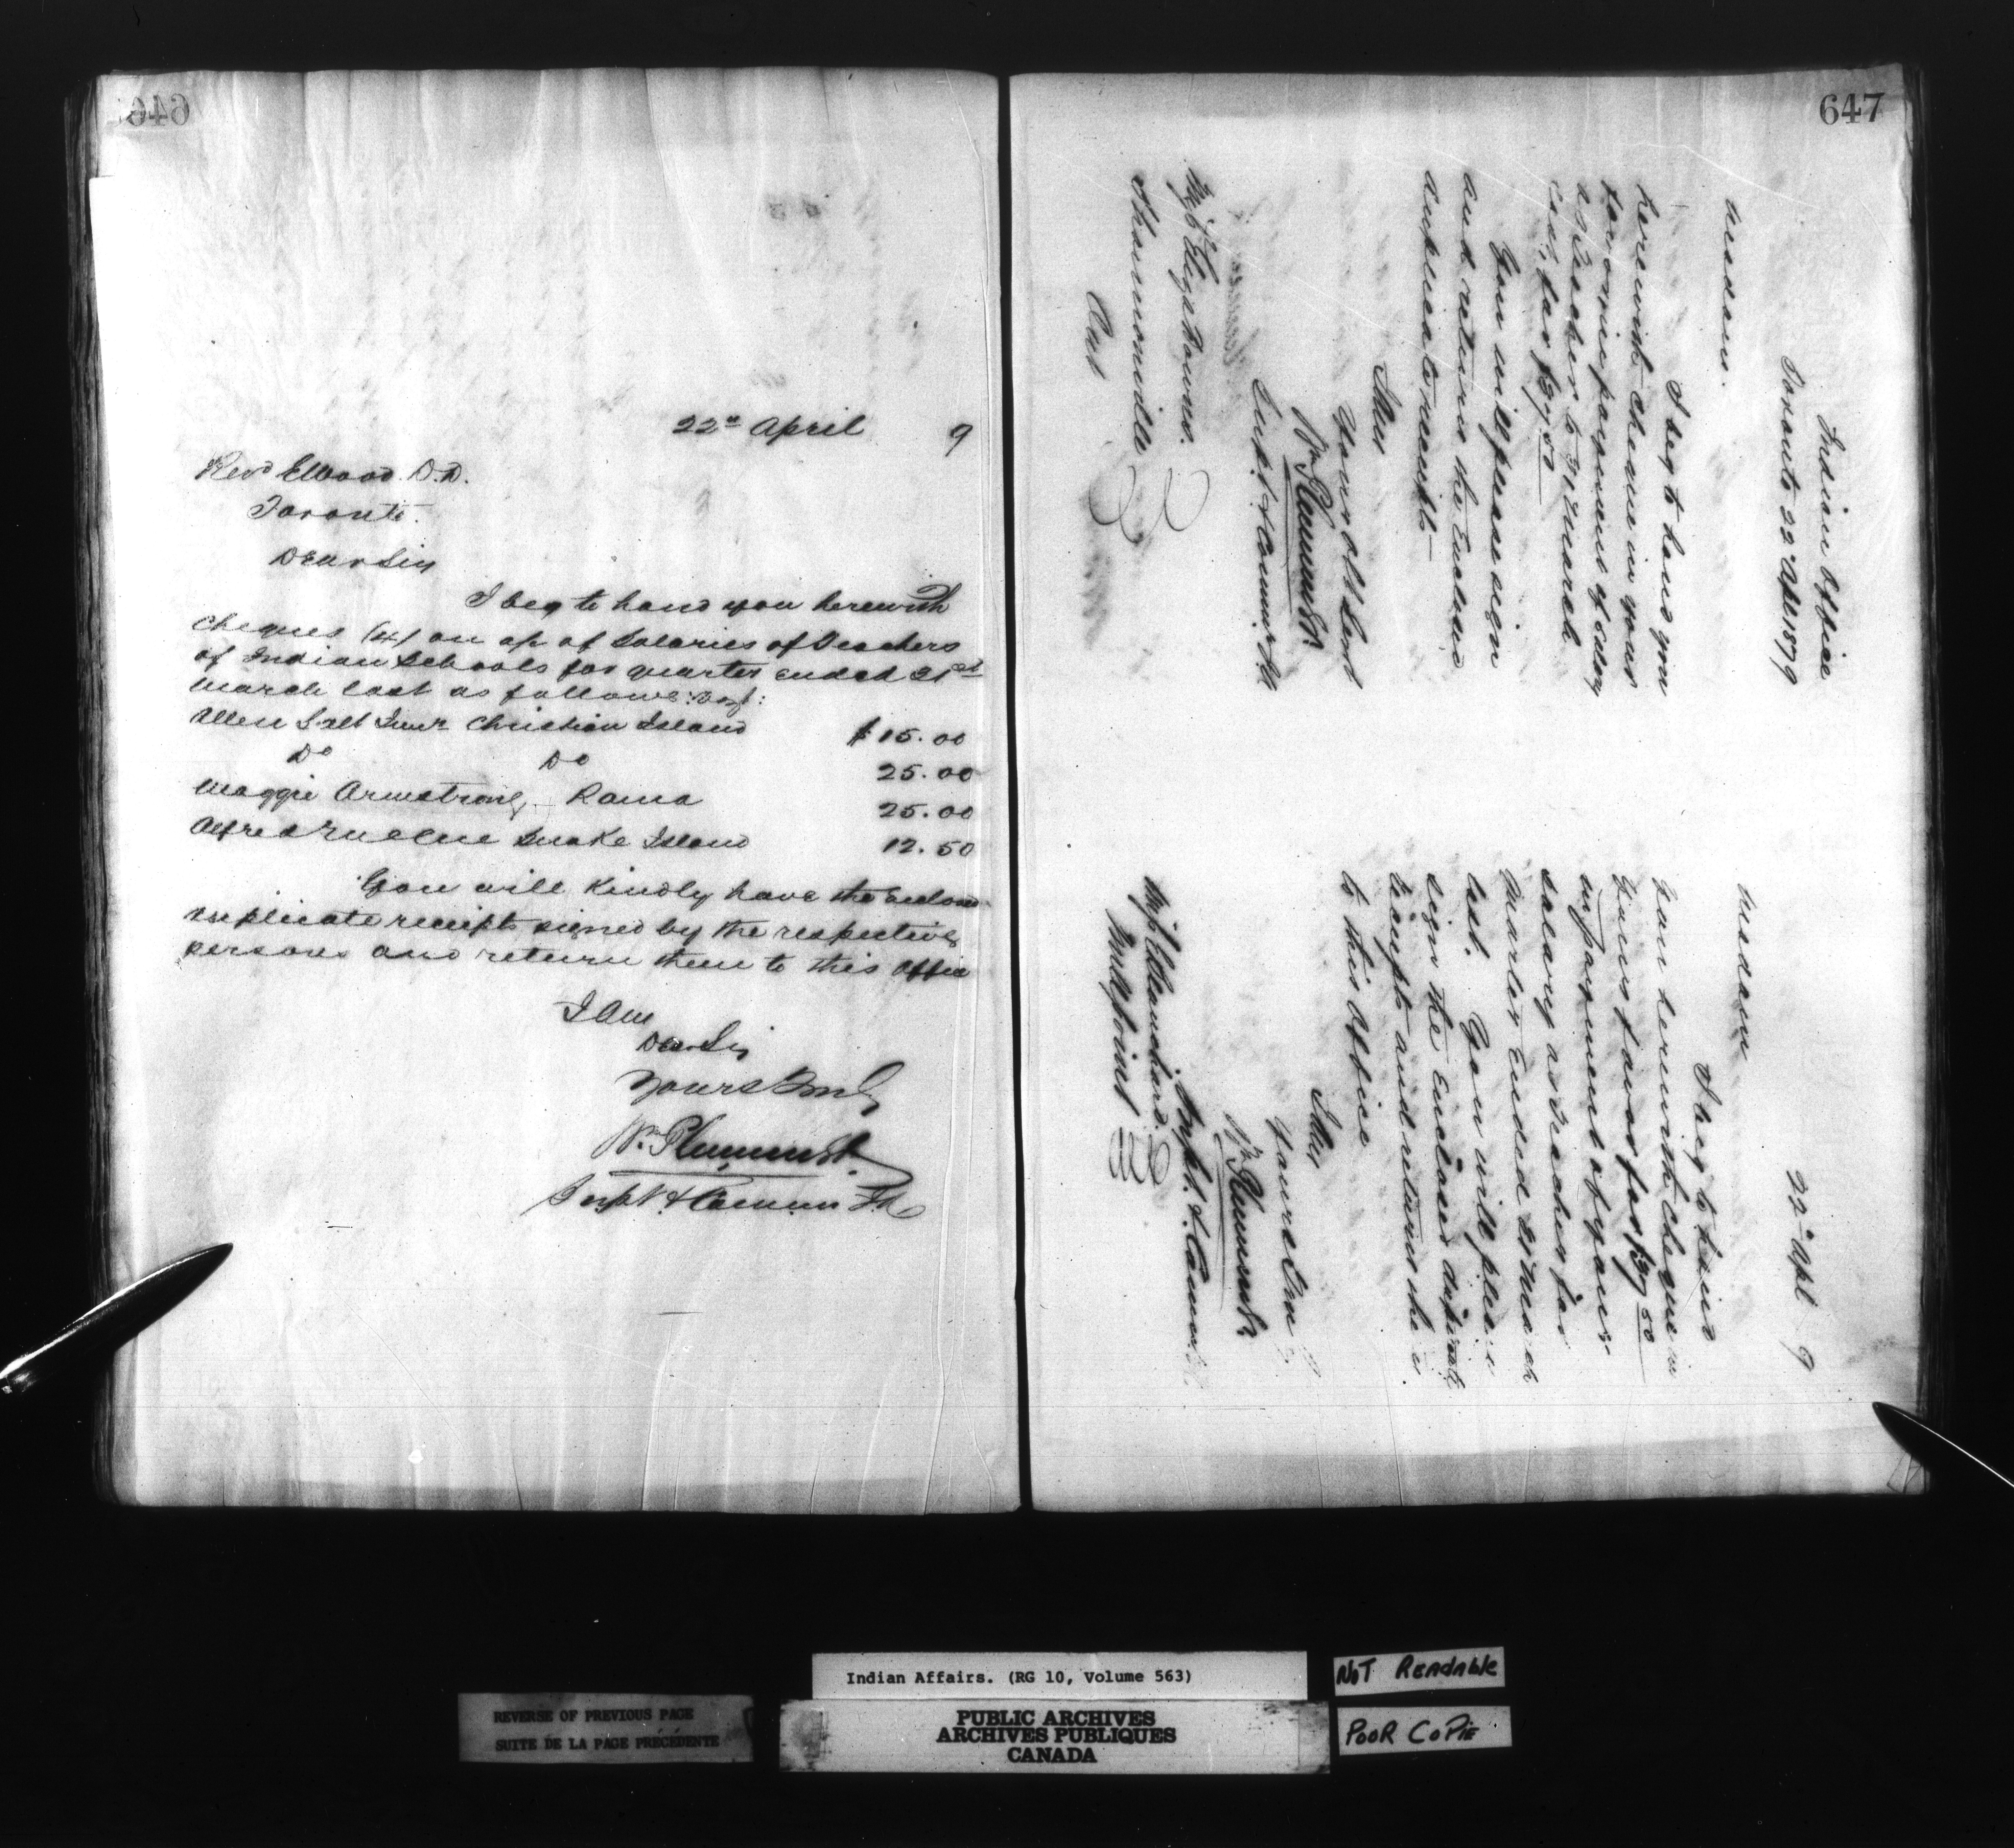 646
22nd April 9
Revd E Wood. D.D.
Toronto.
Dear Sir
I beg to hand you herewith
cheques (4) on a/c of Salaries of Teachers
of Indian Schools for quarter ended 31st
March last as follows: Viz:
Allen Salt Junr Christian Island $15.00
Do Do 25.00
Maggie Armstrong, Rama 25.00
Alfred Snake Island 12.50
You will Kindly have the enclosed
duplicate receipts signed by the respective
persons and return them to this Office
I Am
Dear Sir
Yours Truly
Wm Plummer
Supt & Commr
647
Indian Office
Toronto 22 Apl 1879
Madam.
I beg to hand you
herewith cheque in your
favor in payment of salary
as Teacher to 31 March
for $37.50
You will please sign
and return the Enclosed
duplicate receipts—
Your obt Servt
Wm Plummer
Supt & Commr
Miss
Shannonville
Ont
22nd Apl 9
Madam
I beg to hand
you herewith cheque in
your favor for $37 50
in payment of your
salary as Teacher for
quarter Ended 31 March
last. You will please
sign the Enclosed duplicate
receipts and return the
to this Office
Yours Truly
Wm Plummer
Supt. & Commr
Miss
Indian Affairs. (RG 10, Volume 563)
NOT READABLE
POOR COPIE
REVERSE OF PREVIOUS PAGE
SUITE DE LA PAGE PRÉCÉDENTE
PUBLIC ARCHIVES
ARCHIVES PUBLIQUES
CANADA